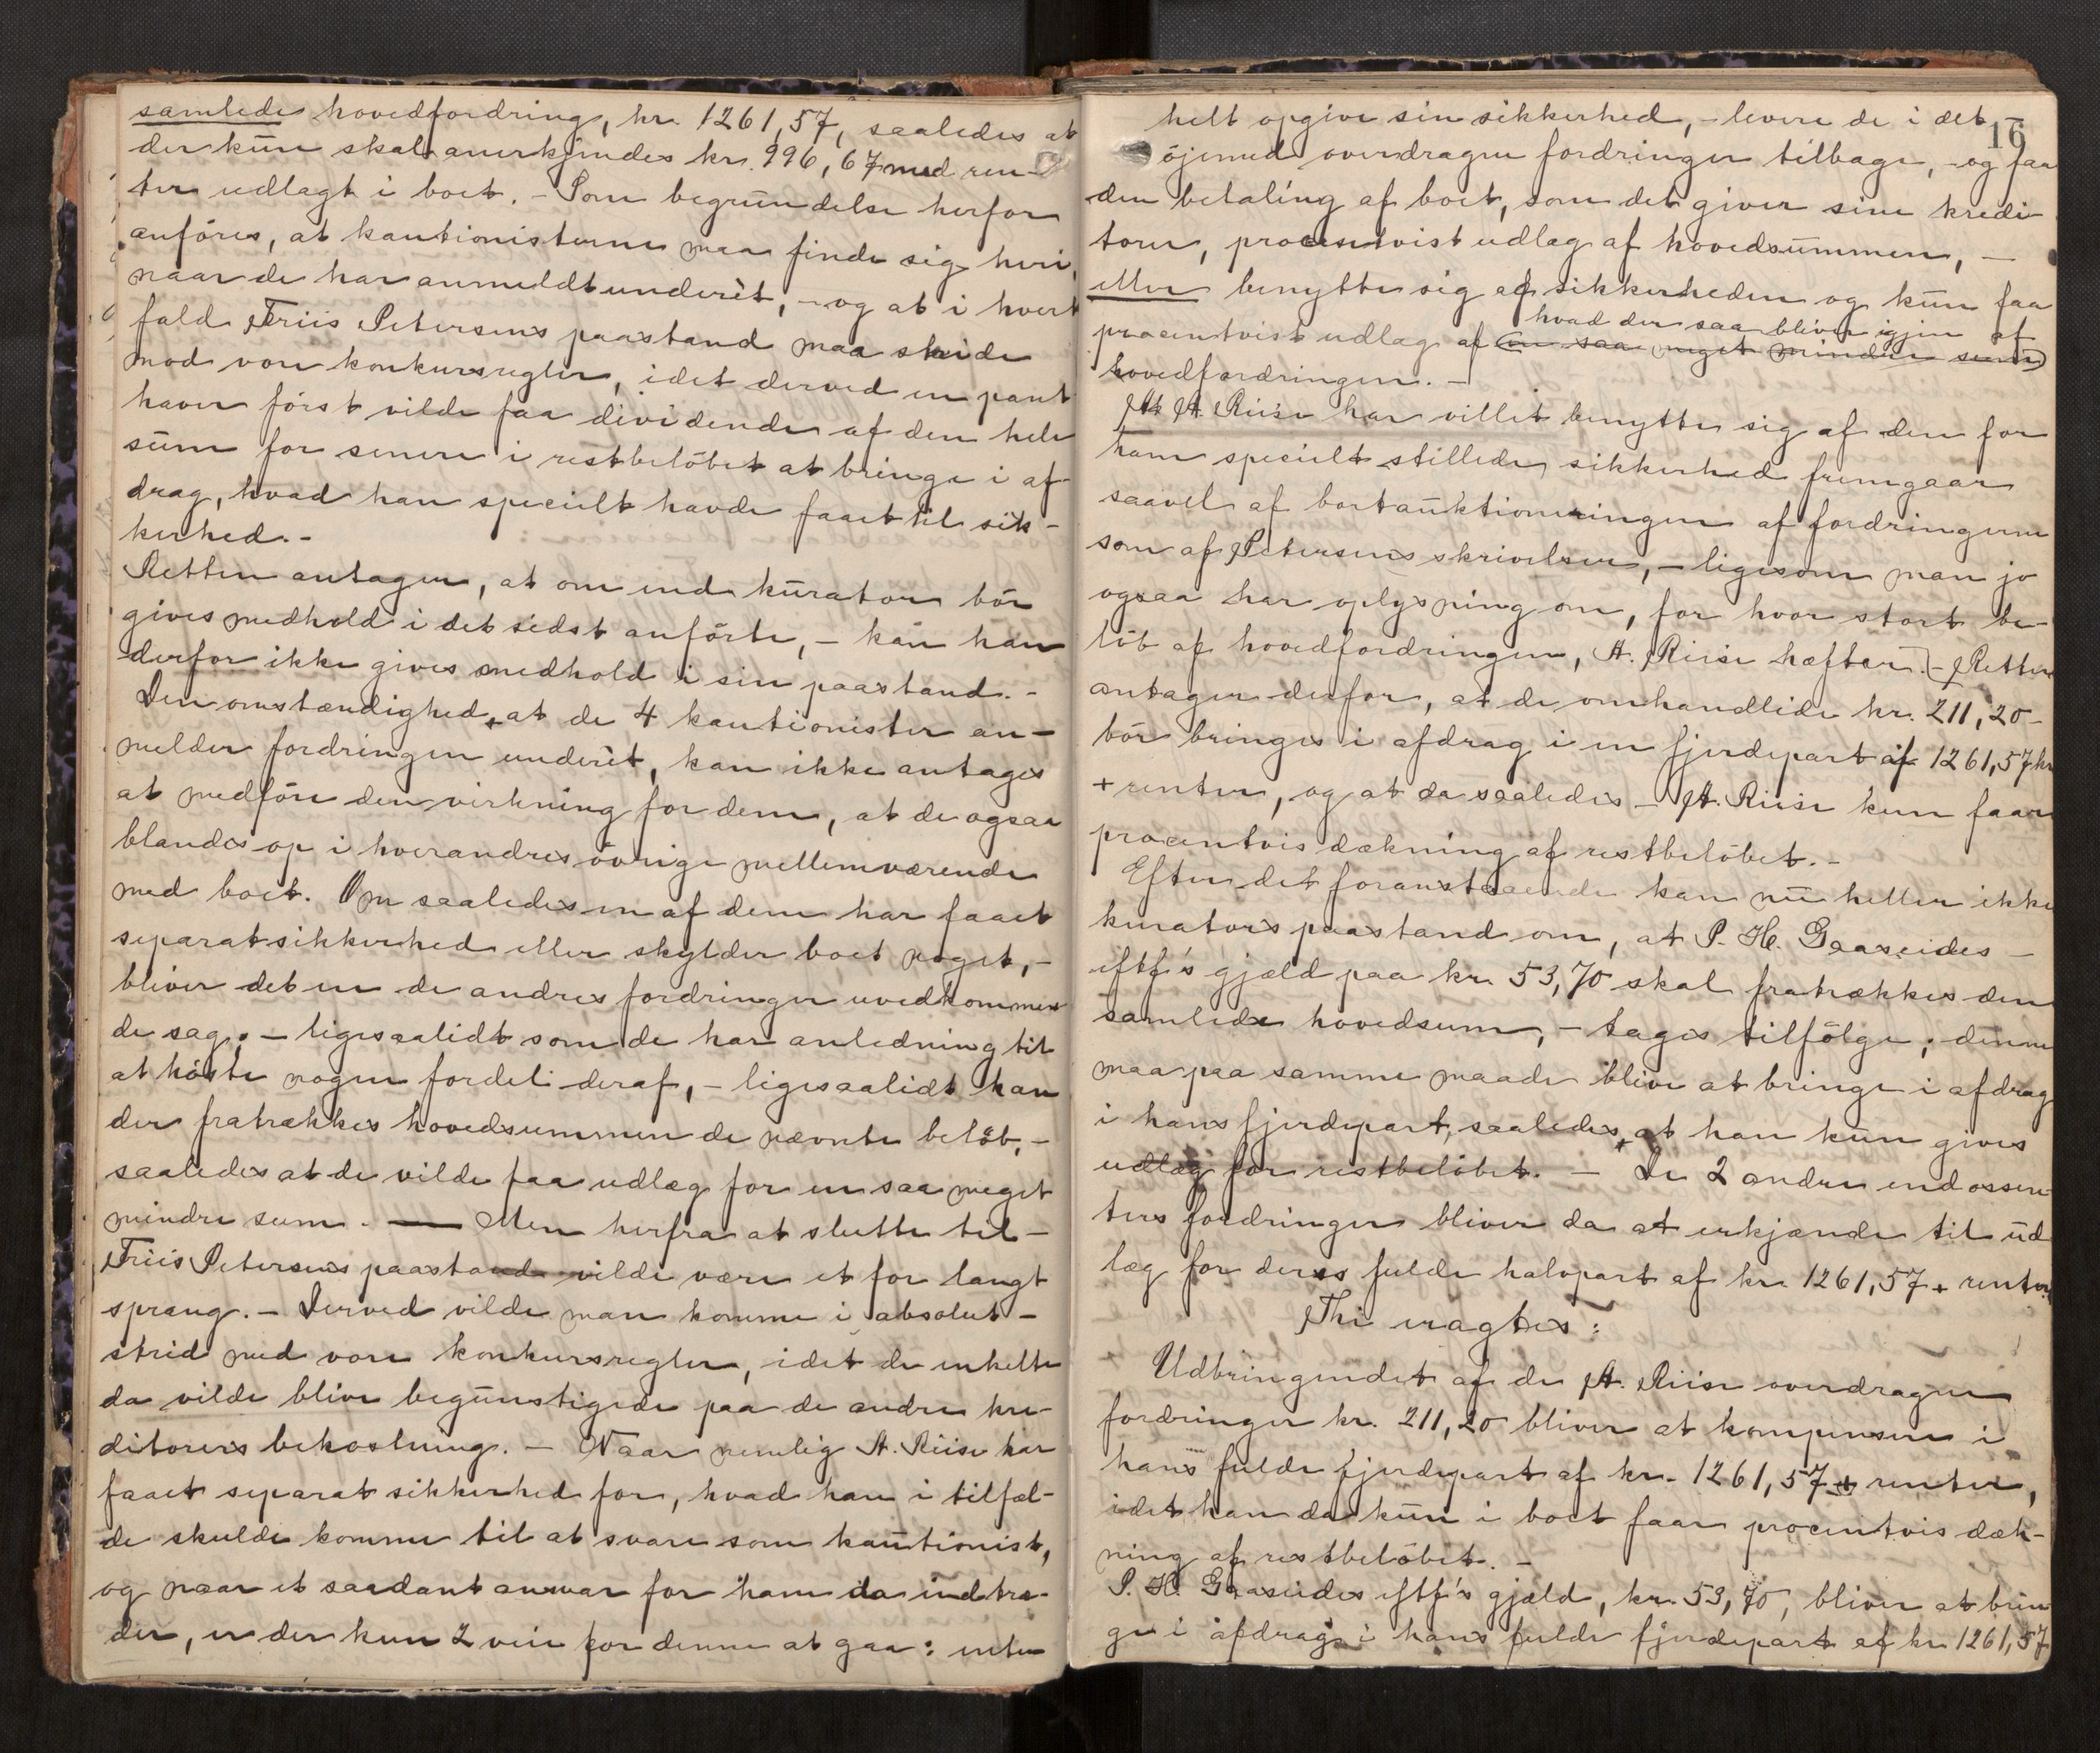 samlede hovedfordring, kr. 1261,57, saaledes at
der kun skal anerkjendes kr. 996,67 med ren-
ter udlagt i boet. - Som begrundelse herfor
anføres, at kautionisterne maa finde sig heri,
naar de har anmeldt underét, - og at i hvert
fald Friis Petersens paastand maa stride
mod vore konkursregler, idet derved en pant
haver først vilde faa dividende af den hele
sum for senere i restbeløbet at bringe i af-
drag, hvad han specielt havde faaet til sik-
kerhed. -
Retten antager, at om end kurator bør
gives medhold i det sidst anførte, - kan han
derfor ikke gives medhold i sin paastand. -
Den omstændighed, at de 4 kautionister an-
melder fordringen underét, kan ikke antages
at medføre den virkning for dem, at de ogsaa
blandes op i hverandres øvrige mellemværende
med boet. Om saaledes en af dem har faaet
separatsikkerhed eller skylder boet noget, -
bliver det en de andres fordringer uvedkommen
de sag; - ligesaalidt som de har anledning til
at høste nogen fordel deraf, - ligesaalidt kan
der fratrækkes hovedsummen de nævnte beløb, -
saaledes at de vilde faa udlæg for en saa meget
mindre sum. — Men herfra at slutte til -
Friis Petersens paastand vilde være et for langt
sprang. - Derved vilde man komme i absolut -
strid med vore konkursregler, idet de enkelte
da vilde blive begunstigede paa de andre kre-
ditorers bekostning. - Naar nemlig A. Riise har
faaet separat sikkerhed for, hvad han i tilfæl-
de skulde komme til at svare som kautionist,
og naar et saadant ansvar for ham da indtræ-
der, er der kun 2 veie for denne at gaa: enten
16
helt opgive sin sikkerhed, - levere de i det -
øjemed overdragne fordringer tilbage, - og faa
den betaling af boet, som det giver sine kredi-
torer, procentvist udlæg af hovedsummen, —
eller benytte sig af sikkerheden og kun faa
hvad der saa bliver igjen af
procentvist udlæg af en saa meget mindre sum
hovedfordringen. -
At A. Riise har villet benytte sig af den for
ham specielt stillede sikkerhed fremgaar
saavel af bortauktioneringen af fordringerne
som af Petersens skrivelser, - ligesom man jo
ogsaa har oplysning om, for hvor stort be-
løb af hovedfordringen, A. Riise hæfter. - Retten
antager derfor, at de omhandlede kr. 211,20 -
bør bringes i afdrag i en fjerdepart af 1261,57 kr
+ renter, og at da saaledes - A. Riise kun faar
procentvis dækning af restbeløbet. -
Efter det foranstaaende kan nu heller ikke
kurators paastand om, at P. H. Gaaseides -
eftf's gjæld paa kr. 53,70 skal fratrækkes den
samlede hovedsum, - tages tilfølge; denne
maa paa samme maade blive at bringe i afdrag
i hans fjerdepart, saaledes, at han kun gives
udlæg for restbeløbet. - De 2 andre endossen-
ters fordringer bliver da at erkjænde til ud
læg for deres fulde halvpart af kr. 1261,57 + renter.
Thi eragtes:
Udbringendet af de A. Riise overdragne
fordringer kr. 211,20 bliver at kompensere i
hans fulde fjerdepart af kr. 1261,57 + renter,
idet han da kun i boet faar procentvis dæk-
ning af restbeløbet. -
P. H. Gaaseides eftf's gjæld, kr. 53,70, bliver at brin
ge i afdrag i hans fulde fjerdepart af kr. 1261,57